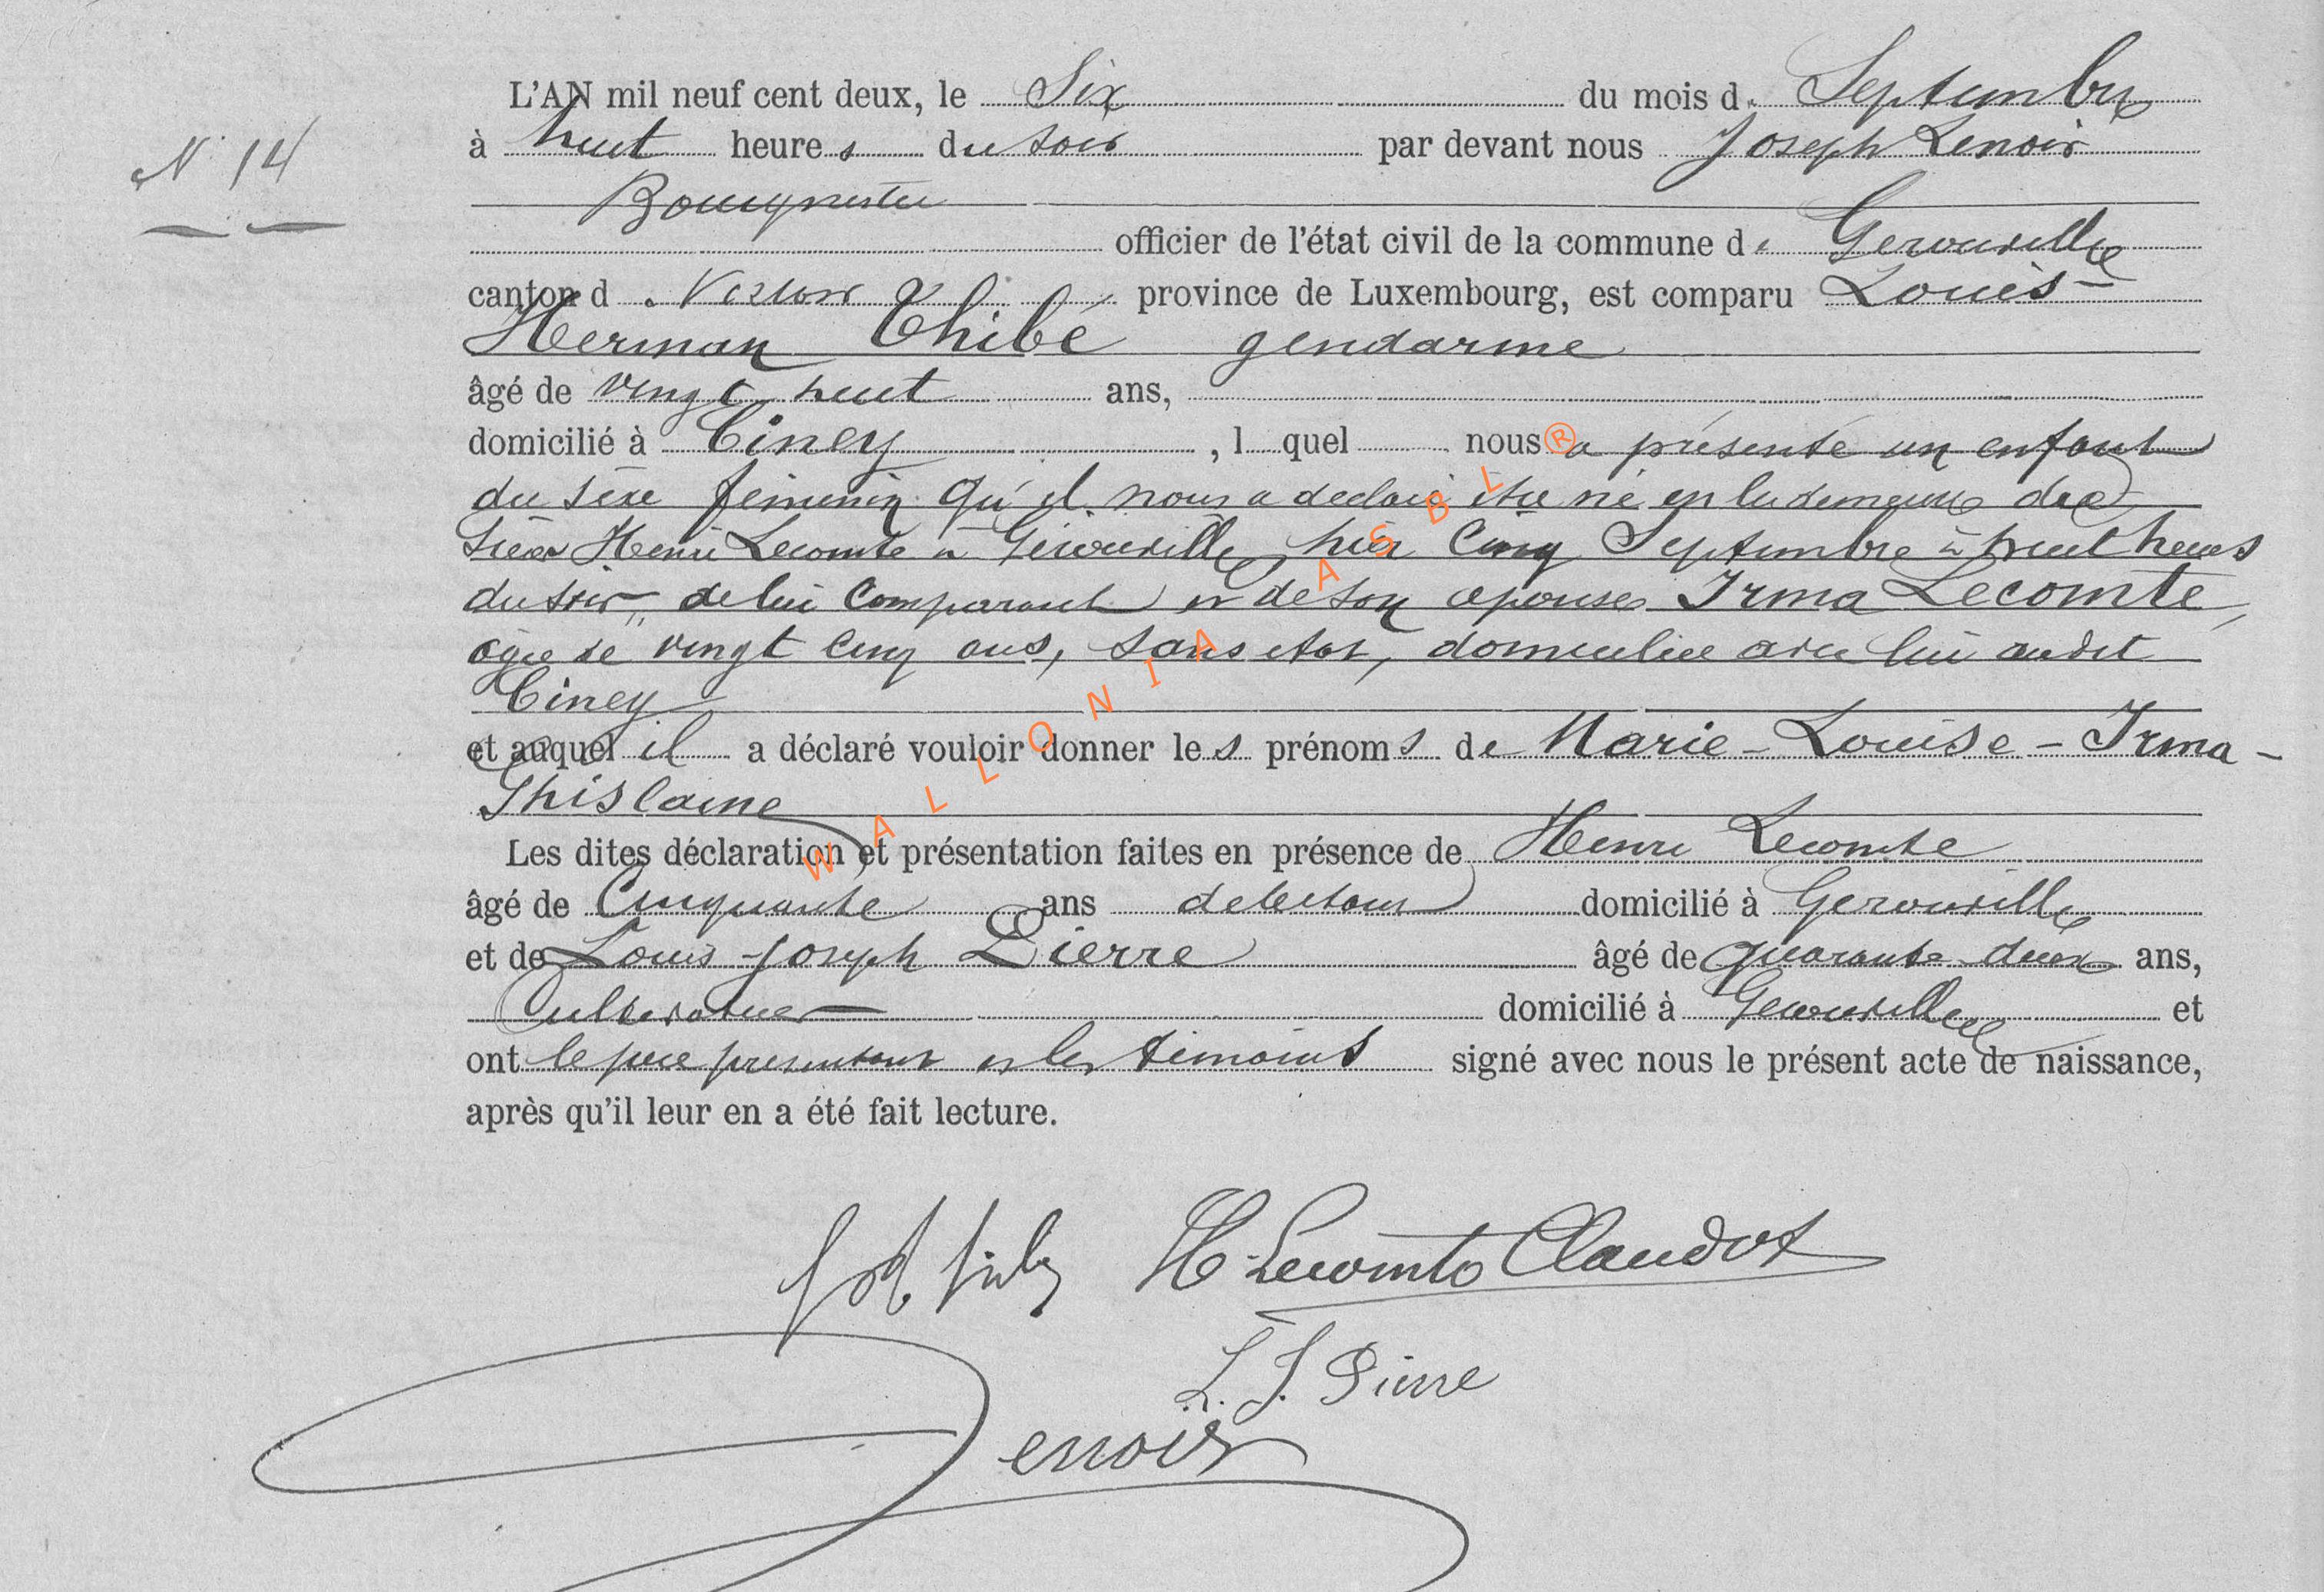 L'AN mil neuf cent deux, le Six du mois de Septembre
N° 14
à huit heures du soir par devant nous Joseph Lenoir
Bourgmestre
officier de l'état civil de la commune de Gerouville
canton de Virton province de Luxembourg, est comparu Louis-
Herman Thibé gendarme
âgé de vingt huit ans,
domicilié à Ciney, lequel nous a présenté un enfant
du sexe féminin qu'il nous a déclaré être né en la demeure du
sieur Henri Lecomte à Gérouville hier cinq Septembre à huit heures
du soir, de lui comparant et de son épouse Irma Lecomte,
agée de vingt cinq ans, sans état, domiciliée avec lui audit
Ciney
et auquel il a déclaré vouloir donner les prénoms de Marie-Louise-Irma-
Ghislaine
Les dites déclaration et présentation faites en présence de Henri Lecomte
âgé de Cinquante ans domicilié à Gerouville
et de Louis-Joseph Pierre âgé de quarante-deux ans,
Cultivateur domicilié à Gerouville et
ont le père présentant et les témoins signé avec nous le présent acte de naissance,
après qu'il leur en a été fait lecture.
H Lecomte Claudot
L. J. Pierre
Lenoir
WALLONIA ASBL ®